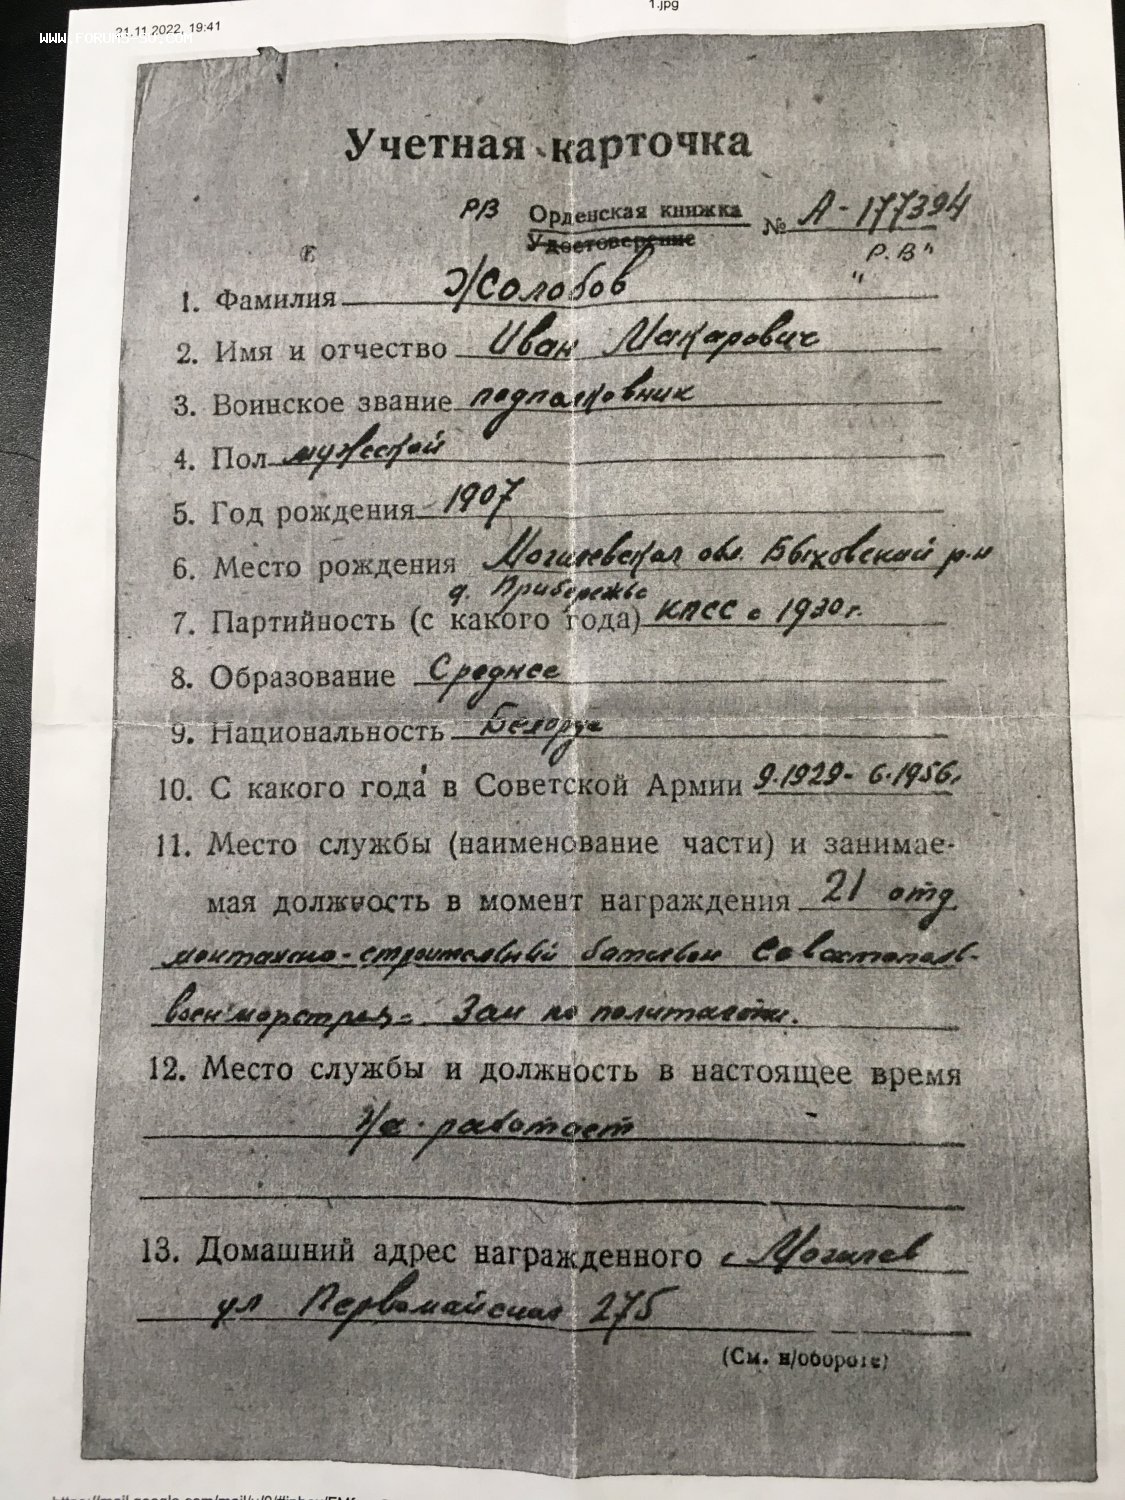 1.jpg
21.11.2022, 19:41
Учетная карточка
РВ Орденская книжка № А-177394
Удостоверение
"Р.В"
1. Фамилия Жолобов
2. Имя и отчество Иван Макарович
3. Воинское звание подполковник
4. Пол мужской
5. Год рождения 1907
6. Место рождения Могилевская обл. Быховский р-н
д. Прибережье
7. Партийность (с какого года) КПСС с 1930 г.
8. Образование Среднее
9. Национальность Белорус
10. С какого года в Советской Армии 9.1929 - 6.1956г
11. Место службы (наименование части) и занимае-
мая должность в момент награждения 21 отд
монтажно-строительный батальон Севастополь-
военморстроя - Зам по политчасти.
12. Место службы и должность в настоящее время
Не работает
13. Домашний адрес награжденного г Могилев
ул Первомайская
(См. н/обороте)